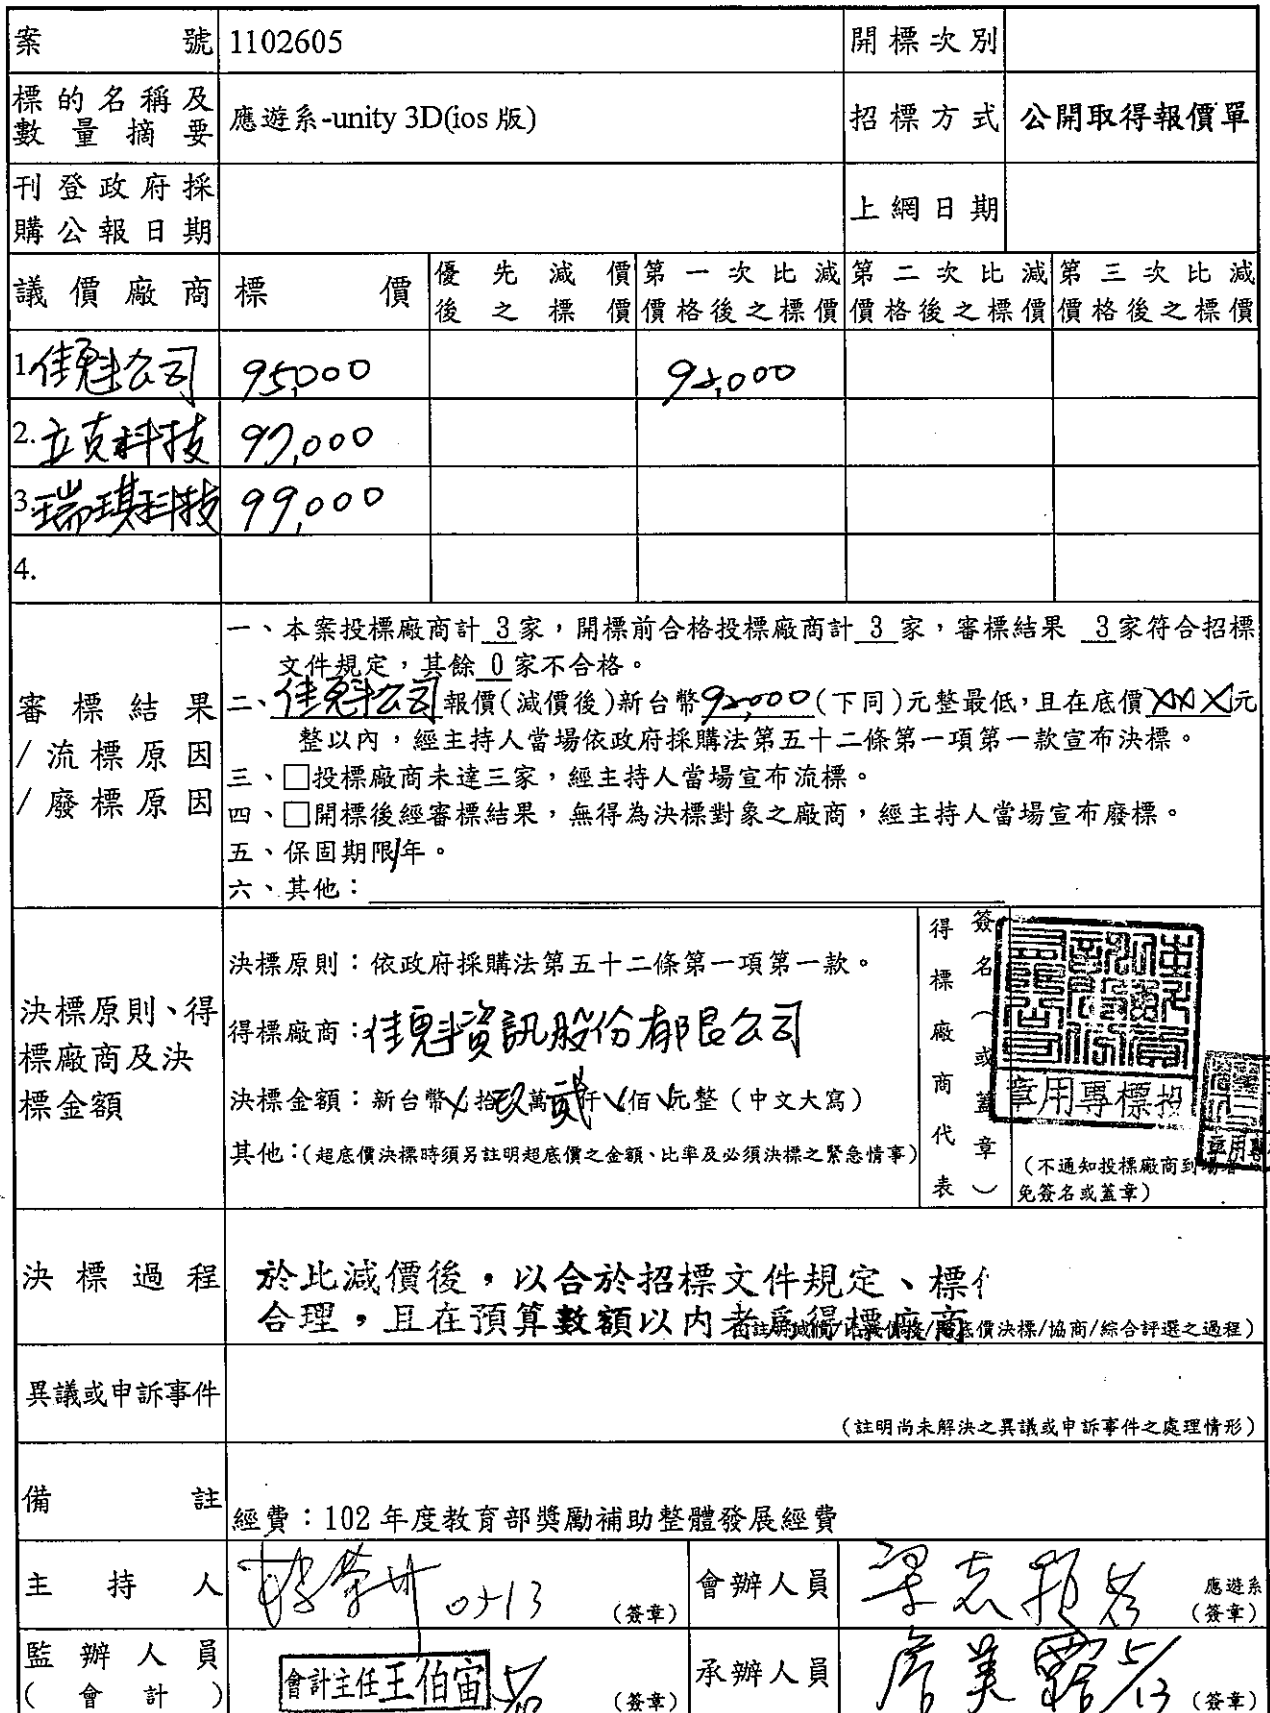 案號 1102605 開標次別
標的名稱及數量摘要 應遊系-unity 3D(ios 版) 招標方式 公開取得報價單
刊登政府採購公報日期 上網日期
議價廠商 標價 優先減價後之標價 第一次比減價格後之標價 第二次比減價格後之標價 第三次比減價格後之標價
1.佳魁公司 95,000 92,000
2.立克科技 97,000
3.瑞琪科技 99,000
4.
審標結果/流標原因/廢標原因
一、本案投標廠商計 3 家，開標前合格投標廠商計 3 家，審標結果 3 家符合招標
文件規定，其餘 0 家不合格。
二、佳魁公司報價(減價後)新台幣92,000(下同)元整最低，且在底價XXX元
整以內，經主持人當場依政府採購法第五十二條第一項第一款宣布決標。
三、□投標廠商未達三家，經主持人當場宣布流標。
四、□開標後經審標結果，無得為決標對象之廠商，經主持人當場宣布廢標。
五、保固期限1年。
六、其他：
決標原則、得標廠商及決標金額
決標原則：依政府採購法第五十二條第一項第一款。
得標廠商：佳魁資訊股份有限公司
決標金額：新台幣X拾玖萬貳仟X佰X元整（中文大寫）
其他：(超底價決標時須另註明超底價之金額、比率及必須決標之緊急情事)
得標廠商代表 簽名（或蓋章）
章用專標投
（不通知投標廠商到場者
免簽名或蓋章）
決標過程 於比減價後，以合於招標文件規定、標
合理，且在預算數額以內者為得標廠商
底價決標/協商/綜合評選之過程）
異議或申訴事件
（註明尚未解決之異議或申訴事件之處理情形）
備註 經費：102 年度教育部獎勵補助整體發展經費
主持人 （簽章） 會辦人員 應遊系
（簽章）
監辦人員
（會計） 會計主任王伯宙 （簽章） 承辦人員 5/13 （簽章）